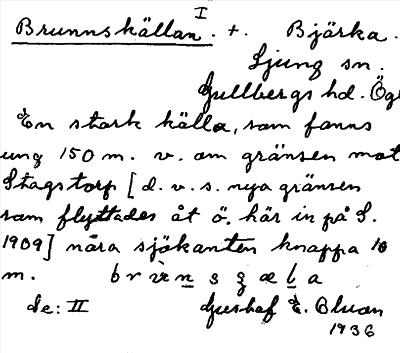 I
Brunnskällan. +. Bjärka.
Ljung sn.
Gullbergs hd. Ög
En stark källa, som fanns
ung 150 m. v. om gränsen mot
Stagstorp [d. v. s. nya gränsen
som flyttades åt ö. här in på S.
1909] nära sjökanten knappa 10
m. b r n s a
de: II Gustaf E. Bluan
1936